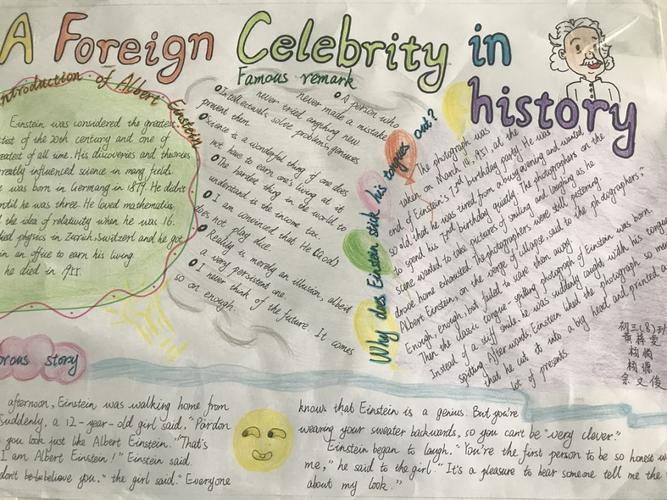 A Foreign Celebrity in
history
Introduction of Albert Einstein
Einstein was considered the greatest
20th century and one of
greatest of all time. His discoveries and theories
really influenced science in many fields
was born in Germany in 1879. He didnt
until he was three. He loved mathematics
the idea of relativity when he was 16.
physics in Zurich, Switzerl and he got
in an office to earn his living
he died in 1955.
Famous remark
A person who
never made a mistake
never tried anything new
Intellectuals solve problems, geniuses
prevent them
science is a wonderful thing if one does
not have to earn one's living at it
The hardest thing in the world to
understand is the income tax.
I am convinced that He (God)
does not play dice.
Reality is merely an illusion, albeit
a very persistent one.
I never think of the future. It comes
so on enough.
Why does Einstein stick his tongues out?
The photograph was
taken on March 14, 1951 at the
end of Einstein's 72rd birthday party. He was
so old that he was tired from a busy evening and wanted
to spend his 72rd birthday quietly. The photographers on the
scene wanted to take pictures of smiling and laughing as he
drove home exhausted. The photographers were still pestering
Albert Einstein, on the verge of collapse, said to the photographers:
Enough, enough, but failed to save them away
Then the classic tongue-spitting photograph of Einstein was born.
Instead of a stiff smile he was suddenly caught with his tongue
spitting. Afterwards Einstein liked the photograph so much
that he cut it into a big heart and printed
lot of presents.
初三(8)班
orous story
afternoon, Einstein was walking home from
suddenly, a 12-year-old girl said, "Pardon
you look just like Albert Einstein." "That's
I am Albert Einstein!" Einstein said.
don't be believe you," the girl said." Everyone
know that Einstein is a genius. But you're
wearing your sweater backwards, so you can't be "very clever."
Einstein began to laugh. "You're the first person to be so honest w
me," he said to the girl. "It's a pleasure to hear someone tell me the
about my look."